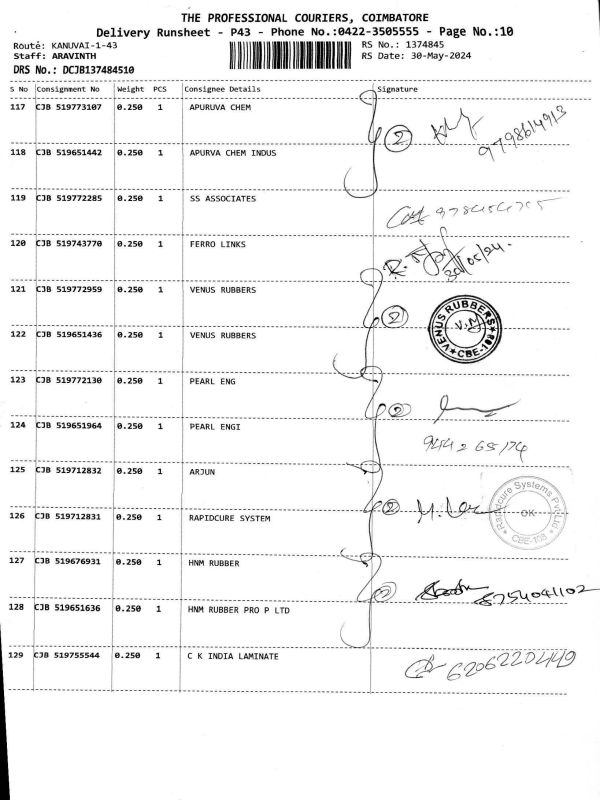 THE PROFESSIONAL COURIERS, COIMBATORE
Delivery Runsheet - P43 - Phone No.:0422-3505555 - Page No.:10
Route: KANUVAI-1-43 RS No.: 1374845
Staff: ARAVINTH RS Date: 30-May-2024
DRS No.: DCJB137484510
S No Consignment No Weight PCS Consignee Details Signature
117 CJB 519773107 0.250 1 APURUVA CHEM
2
118 CJB 519651442 0.250 1 APURVA CHEM INDUS
119 CJB 519772285 0.250 1 SS ASSOCIATES
120 CJB 519743770 0.250 1 FERRO LINKS
30/05/24.
121 CJB 519772959 0.250 1 VENUS RUBBERS
2 VENUS RUBBERS CBE-108
122 CJB 519651436 0.250 1 VENUS RUBBERS
123 CJB 519772130 0.250 1 PEARL ENG
2
124 CJB 519651964 0.250 1 PEARL ENGI
944 2 65174
125 CJB 519712832 0.250 1 ARJUN
2 Rapidcure Systems Pvt Ltd OK CBE-108
126 CJB 519712831 0.250 1 RAPIDCURE SYSTEM
127 CJB 519676931 0.250 1 HNM RUBBER
2 8754041102
128 CJB 519651636 0.250 1 HNM RUBBER PRO P LTD
129 CJB 519755544 0.250 1 C K INDIA LAMINATE
6206220449